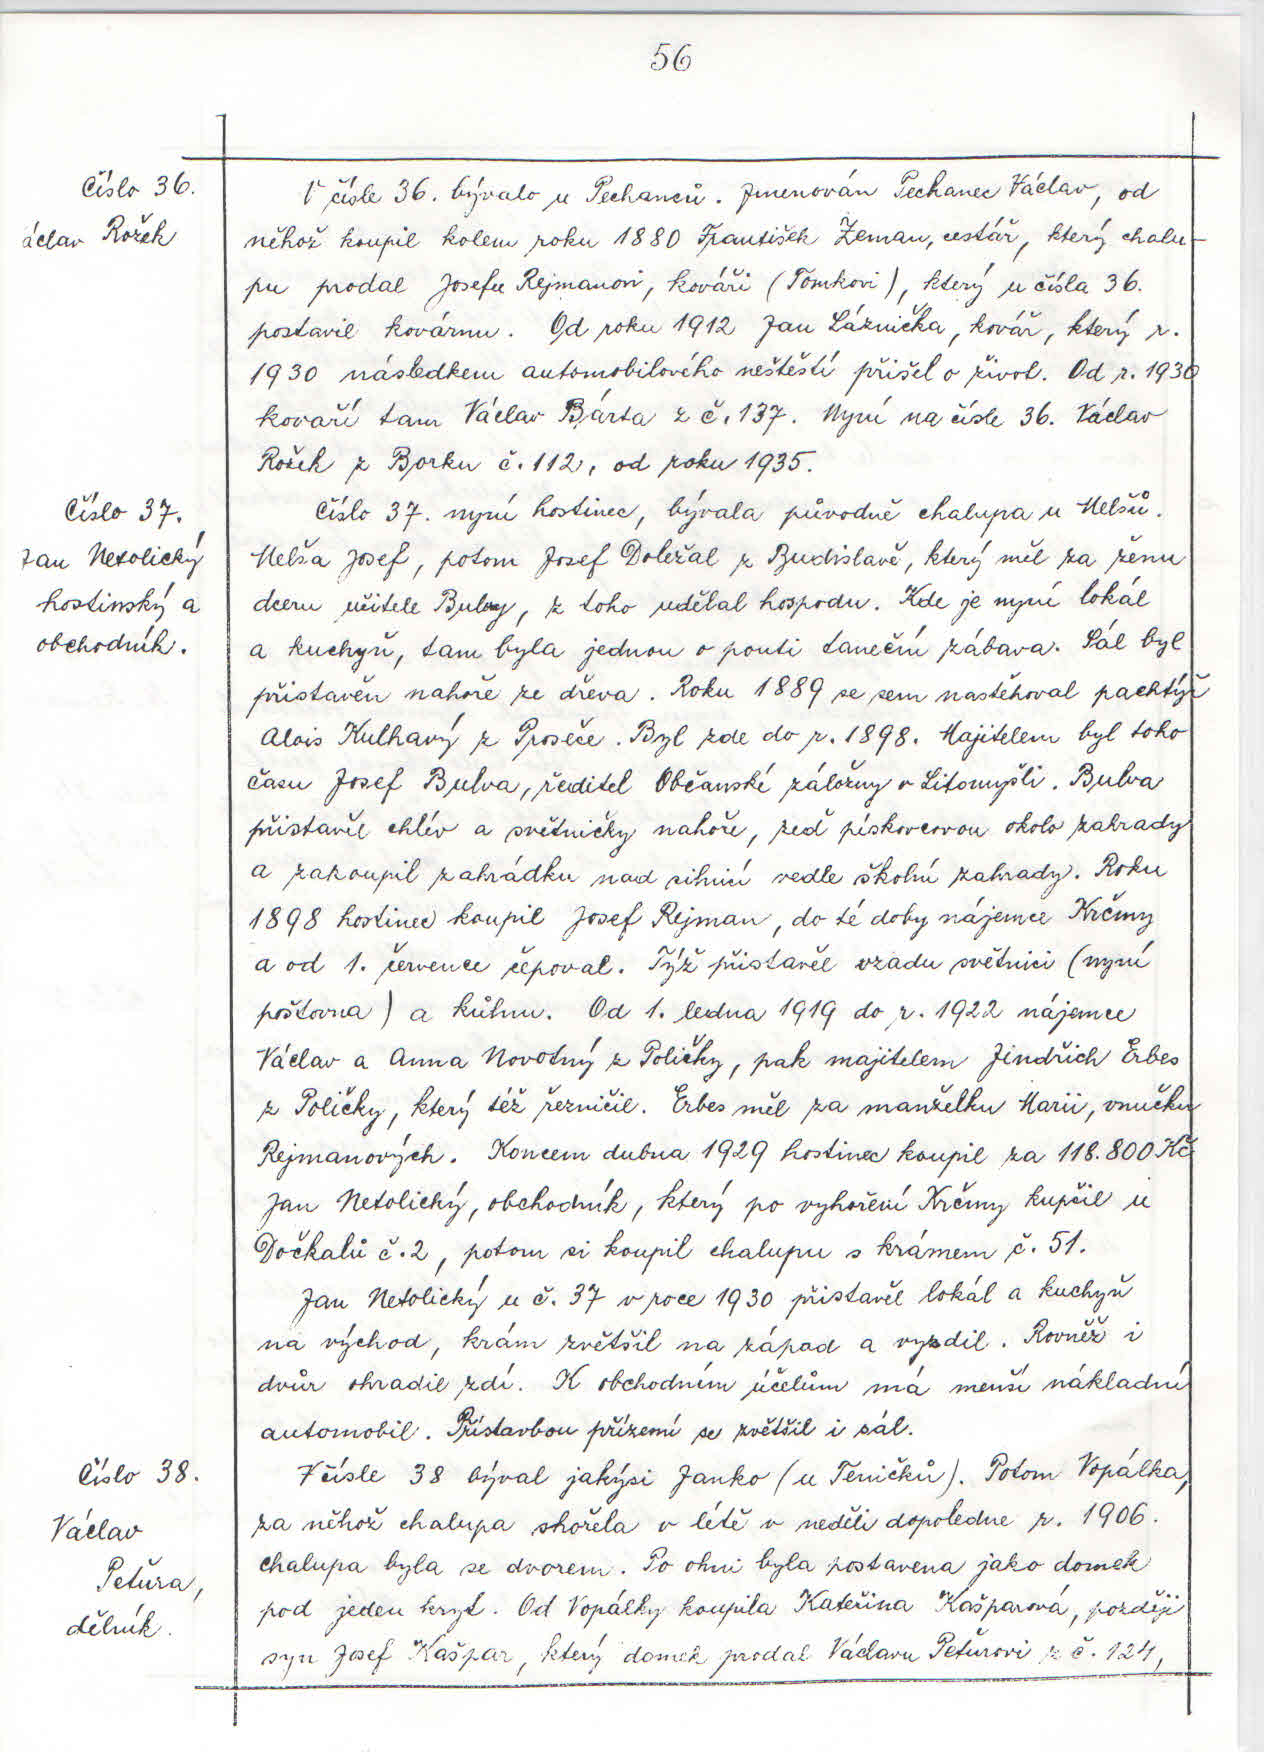 56
Číslo 36.
áclav Rožek
V čísle 36. bývalo u Pechanců. Jmenován Pechanec Václav, od
něhož koupil kolem roku 1880 František Zeman, cestář, který chalu-
pu prodal Josefu Rejmanovi, kováři (Tomkovi), který u čísla 36.
postavil kovárnu. Od roku 1912 Jan Láznička, kovář, který r.
1930 následkem automobilového neštěstí přišel o život. Od r. 1930
kovaří tam Václav Bárta z č. 137. Nyní na čísle 36. Václav
Rožek z Borku č. 112, od roku 1935.
Číslo 37.
Jan Netolický
hostinský a
obchodník.
Číslo 37. nyní hostinec, bývala původně chalupa u Melšů.
Melša Josef, potom Josef Doležal z Budislavě, který měl za ženu
dceru učitele Bulvy, z toho udělal hospodu. Kde je nyní lokál
a kuchyň, tam byla jednou o pouti taneční zábava. Sál byl
přistavěn nahoře ze dřeva. Roku 1889 se sem nastěhoval pachtýř
Alois Kulhavý z Proseče. Byl zde do r. 1898. Majitelem byl toho
času Josef Bulva, ředitel Občanské záložny v Litomyšli. Bulva
přistavěl chlév a světničky nahoře, zeď pískovcovou okolo zahrady
a zakoupil zahrádku nad silnicí vedle školní zahrady. Roku
1898 hostinec koupil Josef Rejman, do té doby nájemce Krčmy
a od 1. července čepoval. Týž přistavěl vzadu světnici (nyní
poštovna) a kůlnu. Od 1. ledna 1919 do r. 1922 nájemce
Václav a Anna Novotný z Poličky, pak majitelem Jindřich Erbes
z Poličky, který též řezničil. Erbes měl za manželku Marii, vnučku
Rejmanových. Koncem dubna 1929 hostinec koupil za 118.800 Kč
Jan Netolický, obchodník, který po vyhoření Krčmy kupčil u
Dočkalů č. 2, potom si koupil chalupu s krámem č. 51.
Jan Netolický u č. 37 v roce 1930 přistavěl lokál a kuchyň
na východ, krám zvětšil na západ a vyzdil. Rovněž i
dvůr ohradil zdí. K obchodním účelům má menší nákladní
automobil. Přístavbou přízemí se zvětšil i sál.
Číslo 38.
Václav
Petura,
dělník.
V čísle 38 býval jakýsi Janko (u Teničků). Potom Vopálka,
za něhož chalupa shořela v létě v neděli dopoledne r. 1906.
Chalupa byla se dvorem. Po ohni byla postavena jako domek
pod jeden kryt. Od Vopálky koupila Kateřina Kašparová, později
syn Josef Kašpar, který domek prodal Václavu Peturovi z č. 124,